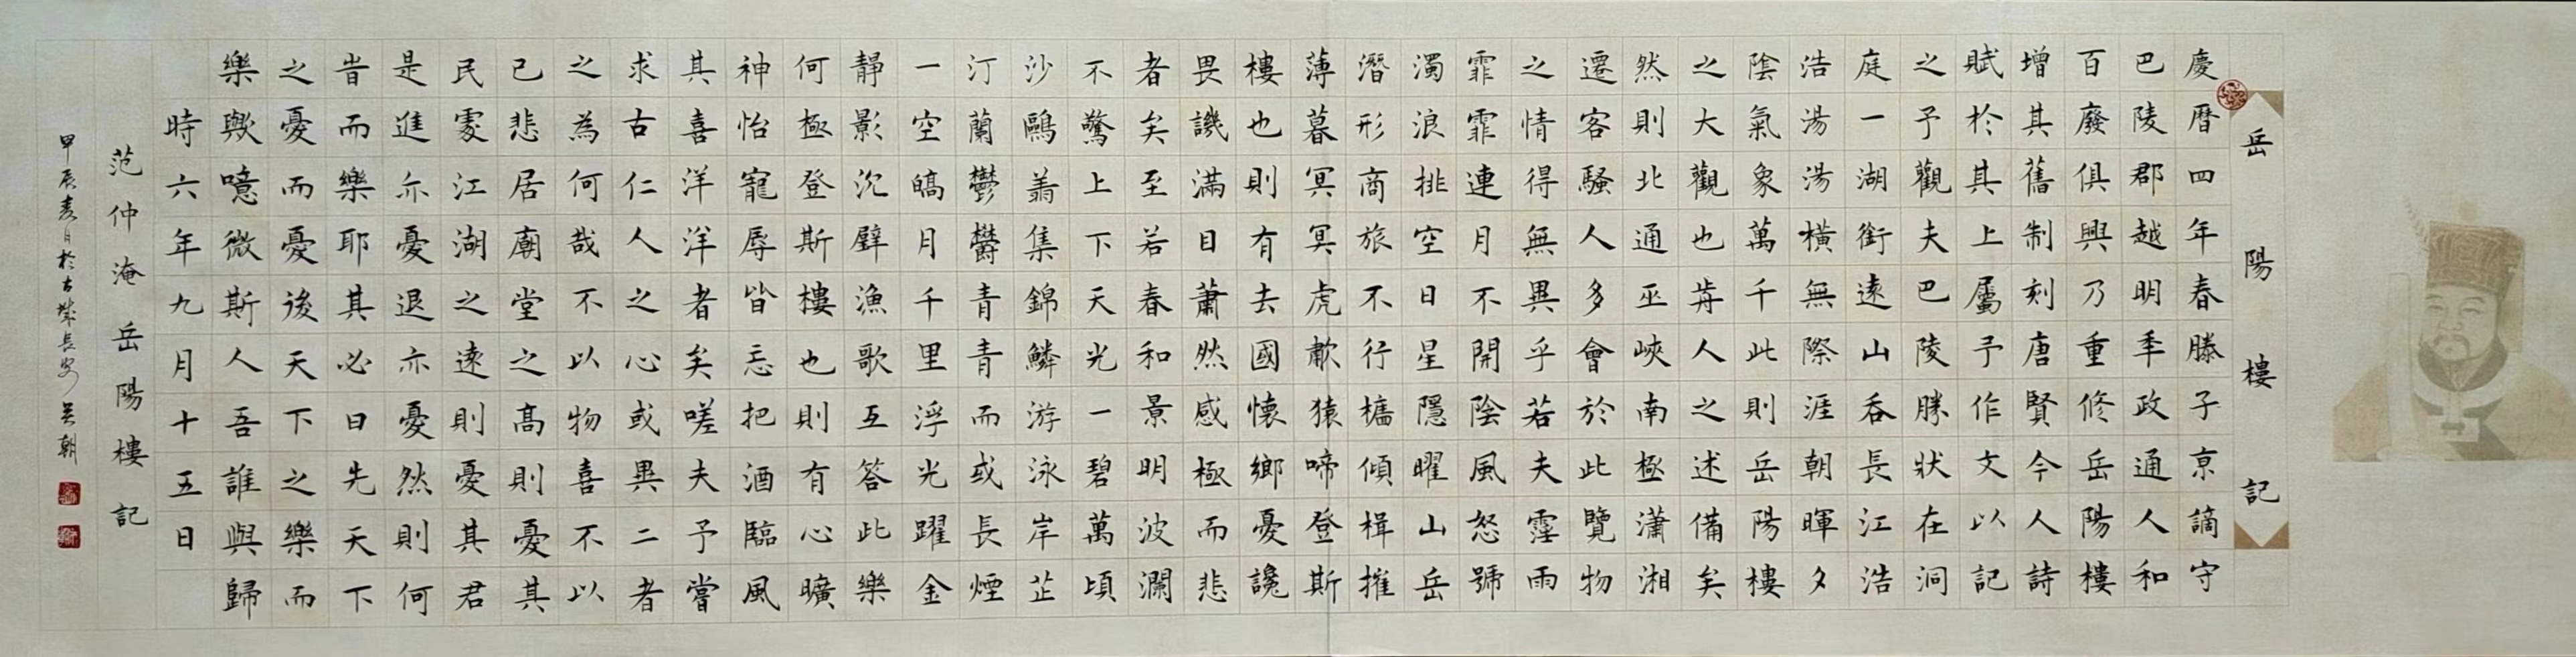 岳陽樓記
慶曆四年春滕子京謫守
巴陵郡越明年政通人和
百廢俱興乃重修岳陽樓
增其舊制刻唐賢今人詩
賦於其上屬予作文以記
之予觀夫巴陵勝狀在洞
庭一湖銜遠山吞長江浩
浩湯湯橫無際涯朝暉夕
陰氣象萬千此則岳陽樓
之大觀也前人之述備矣
然則北通巫峽南極瀟湘
遷客騷人多會於此覽物
之情得無異乎若夫霪雨
霏霏連月不開陰風怒號
濁浪排空日星隱曜山岳
潛形商旅不行檣傾楫摧
薄暮冥冥虎歗猿啼登斯
樓也則有去國懷鄉憂讒
畏譏滿目蕭然感極而悲
者矣至若春和景明波瀾
不驚上下天光一碧萬頃
沙鷗翥集錦鱗游泳岸芷
汀蘭鬱鬱青青而或長煙
一空皜月千里浮光躍金
靜影沉壁漁歌互答此樂
何極登斯樓也則有心曠
神怡寵辱皆忘把酒臨風
其喜洋洋者矣嗟夫予嘗
求古仁人之心或異二者
之為何哉不以物喜不以
己悲居廟堂之高則憂其
民處江湖之遠則憂其君
是進亦憂退亦憂然則何
旹而樂耶其必曰先天下
之憂而憂後天下之樂而
樂歟噫微斯人吾誰與歸
時六年九月十五日
范仲淹岳陽樓記
甲辰春日於古城長安吳朝